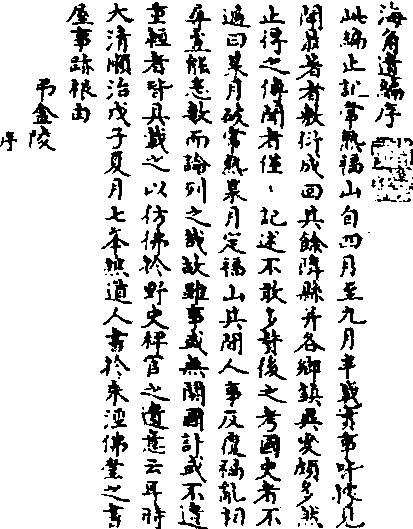 海角遺編序
此編止記常熟福山自四月至九月半載實事皆據見
聞最著者敷衍成回其餘隣縣并各鄉鎮異變頗多然
止得之傳聞者僅、記述不敢多贅後之考國史者不
過曰某月破常熟某月定福山其間人事反覆禍亂相
尋豈能悉數而論列之哉故雖事或無關國計或不
重輕者皆具載之以彷彿於野史稗官之遺意云耳時
大清順治戊子夏月七峯樵道人書於朱涇佛堂之書
屋事跡根由
弔金陵
序